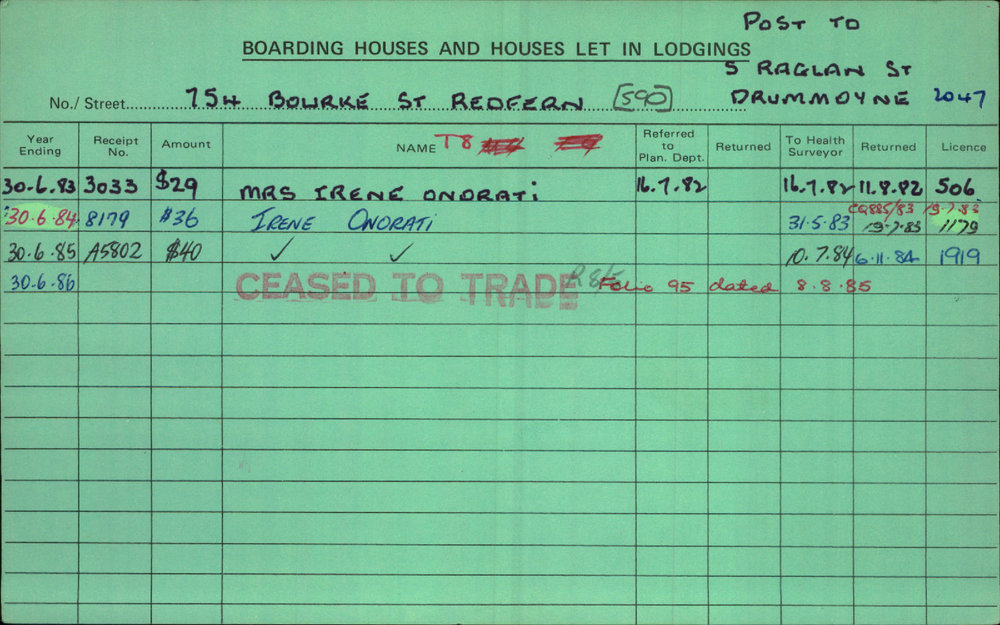 POST TO
BOARDING HOUSES AND HOUSES LET IN LODGINGS
5 RAGLAN ST
No./ Street 754 BOURKE ST REDFERN [590] DRUMMOYNE 2047
Year Ending Receipt No. Amount NAME T8 Referred to Plan. Dept. Returned To Health Surveyor Returned Licence
30.6.83 3033 $29 MRS IRENE ONORATI 16.7.82 16.7.82 11.8.82 506
CQ885/83 19.7.83
30.6.84 8179 $36 IRENE ONORATI 31.5.83 19.7.83 1179
30.6.85 A5802 $40 ✓ ✓ 10.7.84 6.11.84 1919
30.6.86 CEASED TO TRADE Folio 95 dated 8.8.85